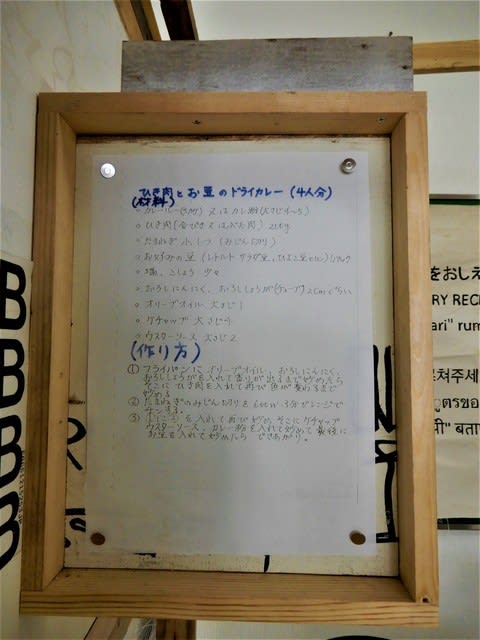 ひき肉とお豆のドライカレー (4人分)
(材料)
○ カレールー(3かけ) 又はカレー粉(大さじ4~5)
○ ひき肉(合びき又はぶた肉) 250g
○ たまねぎ 小1つ (みじん切り)
○ お好みの豆 (レトルト サラダ豆、ひよこ豆など) 1パック
○ 塩、こしょう 少々
○ おろしにんにく、おろししょうが(チューブ) 2cmぐらい
○ オリーブオイル 大さじ1
○ ケチャップ 大さじ
○ ウスターソース 大さじ2
(作り方)
① フライパンに オリーブオイル、おろしにんにく、
おろししょうがを入れて香りが出るまで炒めたら
そこに ひき肉を入れて再び 色が変わるまで
炒める
② たまねぎのみじん切りを 600W 3分 レンジで
チンする。
③ ①に②を入れて再び炒め、そこに ケチャップ
ウスターソース、カレー粉を入れて炒めて 最後に
お豆を入れて炒めたら できあがり。
をおしえ
RY RECI
ari" rum
쳐주세
สูตรขอ
บตา
B
B
B
B